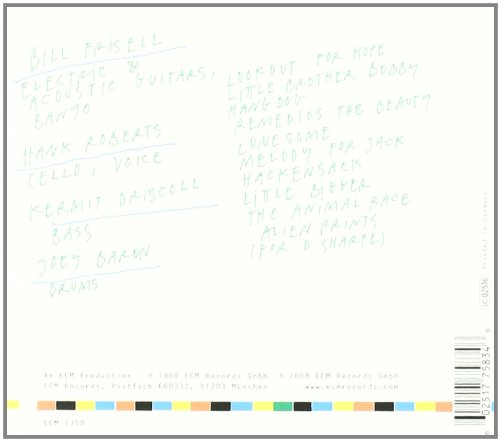 BILL FRISELL
ELECTRIC &
ACOUSTIC GUITARS,
BANJO
HANK ROBERTS
CELLO, VOICE
KERMIT DRISCOLL
BASS
JOEY BARON
DRUMS
LOOKOUT FOR HOPE
LITTLE BROTHER BOBBY
HANGDOG
REMEDIOS THE BEAUTY
LONESOME
MELODY FOR JACK
HACKENSACK
LITTLE BIGGER
THE ANIMAL RACE
ALIEN PRINTS
(FOR D. SHARPE)
An ECM Production ℗ 1988 ECM Records GmbH © 2008 ECM Records GmbH
ECM Records, Postfach 600331, 81203 München www.ecmrecords.com
ECM 1350
LC 02516 Printed in Germany
6 02517 75834 6